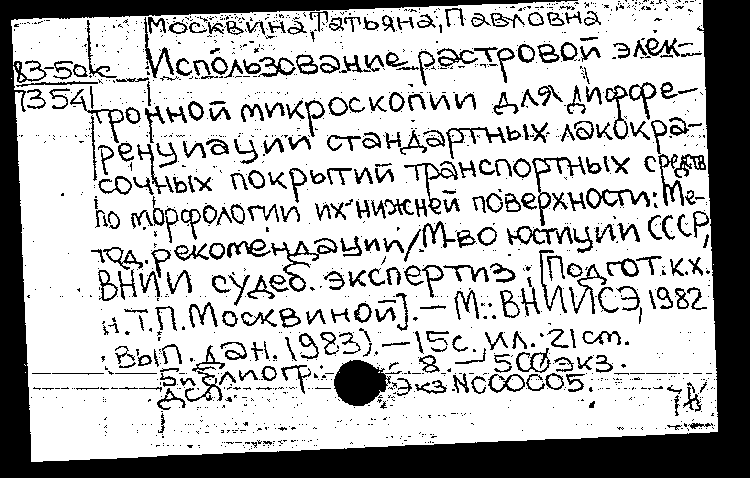 Москвина, Татьяна, Павловна
83-50к
7354
Использование растровой элек-
тронной микроскопии для диффе-
ренциации стандартных лакокра-
сочных покрытий транспортных средств
по морфологии их нижней поверхности: Ме-
тод. рекомендации / М-во юстиции СССР,
ВНИИ судеб. экспертиз; [Подгот. к.х.
н. Т.П. Москвиной]. — М.: ВНИИСЭ, 1982
(вып. дан. 1983). — 15 с. ил.; 21 см.
Библиогр.: с. 8. — 500 экз.
ДСП. Экз N000005.